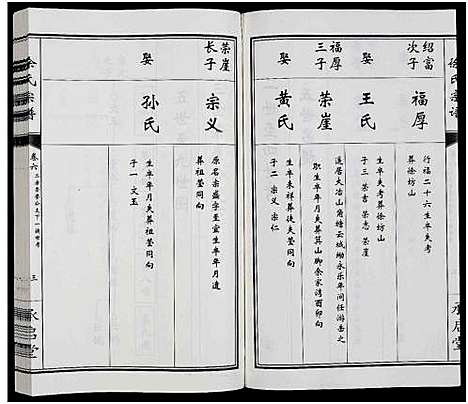 紹富
次子
福厚
行福二十六生卒失考
葬徐坊山
娶
王氏
生卒失考葬徐坊山
子三 榮吉 榮志 榮崖
福厚
三子
榮崖
遷居大冶山角塘云城坳永乐年间任游岳之
职生卒年月失葬箕山脚余家湾酉卯向
娶
黄氏
生卒未祥葬徒失茔同向
子二 宗义 宗仁
荣崖
长子
宗义
原名宗盛字至宣生卒年月遺
葬祖茔同向
娶
孙氏
生卒年月失葬祖茔同向
子一 文玉
徐氏宗譜
卷六
三
承启堂
徐氏宗譜
承启堂